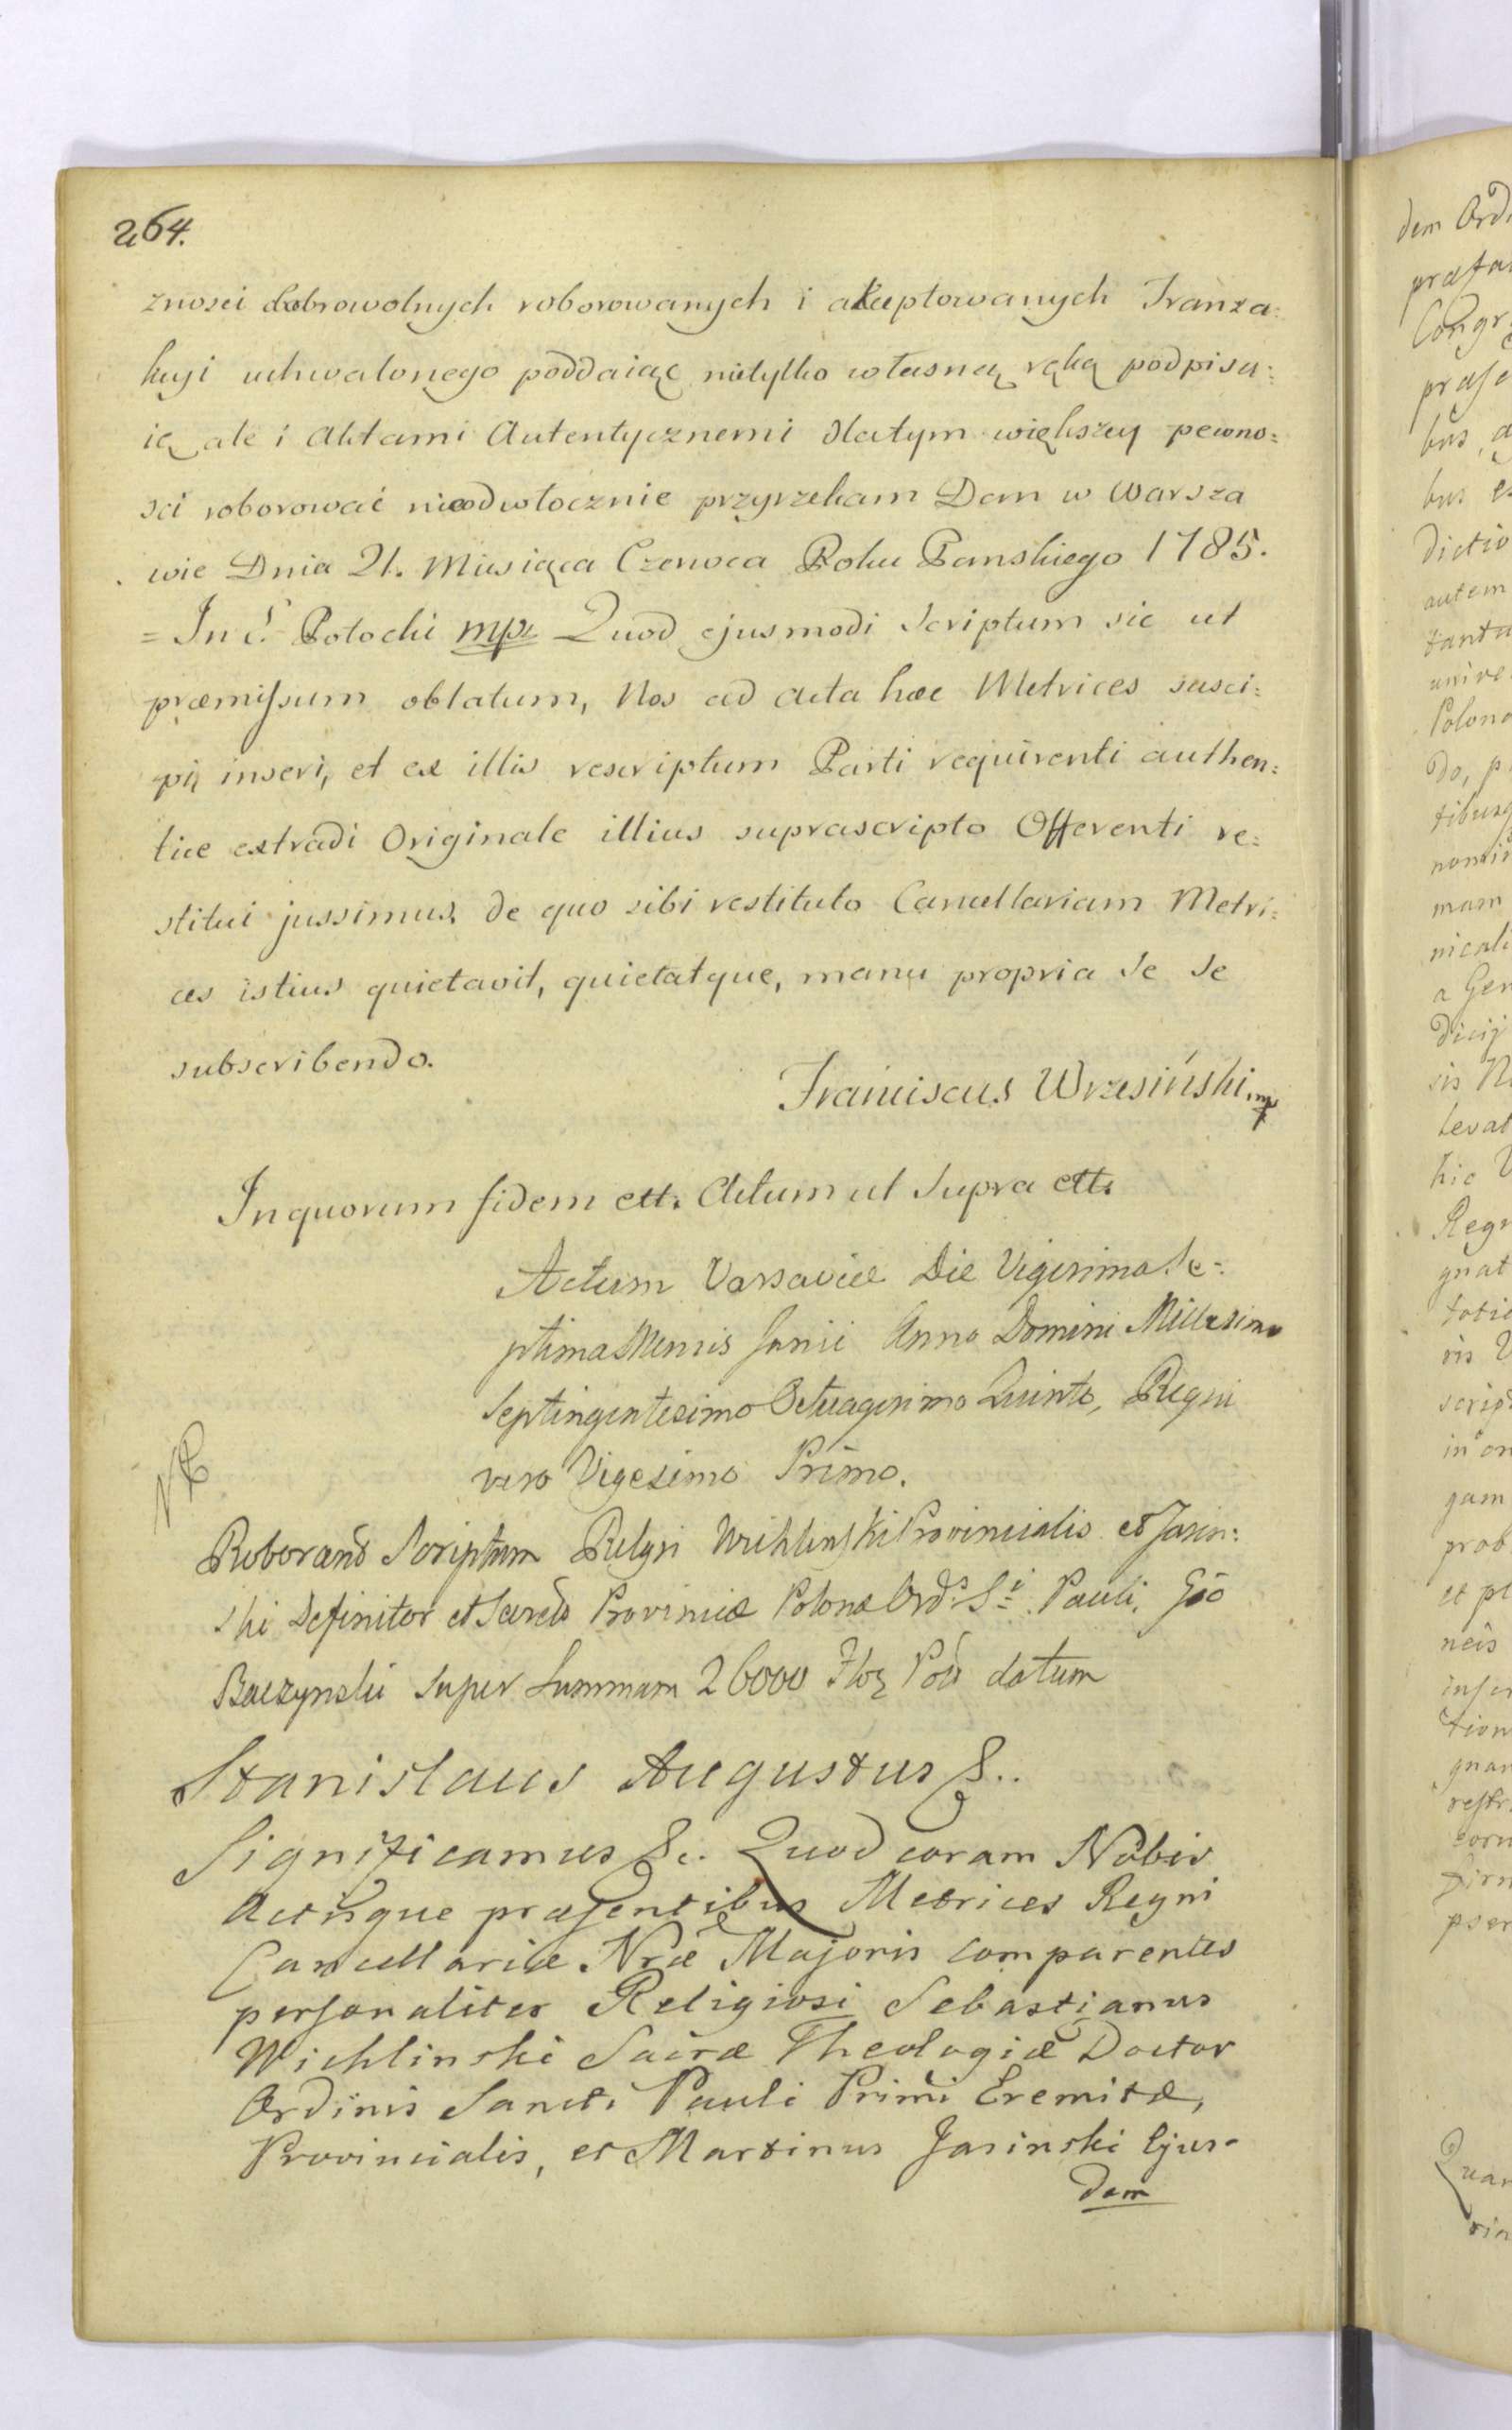 264.
znosci dobrowolnych roborowanych i akceptowanych Tranza=
kcyi uchwalonego poddaiąc nietylko własną ręką podpisu=
ię ale i Aktami Autentycznemi dlatym większey pewno=
sci roborować nieodwłocznie przyrzekam Dan w Warsza
wie Dnia 21. Miesiąca Czerwca Roku Panskiego 1785.
= Potocki mpr Quod ejusmodi Scriptum sic ut
præmissum oblatum, Nos ad acta hæc Metrices susci=
pi, inseri, et ex illis rescriptum Parti requirenti authen=
tice extradi Originale illius suprascripto Offerenti re=
stitui jussimus, de quo sibi restituto Cancellariam Metri=
ces istius quietavit, quietatque, manu propria se se
subscribendo.
Franciscus Wrzesiński mp
In quorum fidem ett. Actum ut Supra ett.
Actum Varsaviæ Die Vigesima Se=
ptima Mensis Junii Anno Domini Millesimo
Septingentesimo Octuagesimo Quinto, Regni
vero Vigesimo Primo.
NB
Roborand Scriptum Relgsi Wichlinski Provincialis et Jasin=
ski Definitor et Secret Provinciæ Polonæ Ord: S: Pauli, Gso
Baczynski super Summam 26000 Pol datum
Stanislaus Augustus &..
Significamus &c. Quod coram Nobis
Actisque præsentibus Metrices Regni
Cancellariæ Nræ Majoris comparentes
personaliter Religiosi Sebastianus
Wichlinski Sacræ Theologiæ Doctor
Ordinis Sancti Pauli Primi Eremitæ,
Provincialis, et Martinus Jasinski Ejus-
dem
dem Ord
præfa
Congr
præse
bus
dictio
autem
unive
Polono
do, p
tibusq
nomin
mam
nicali
a Gen
dicij
levat
hic
Regn
gnat
scrip
gam
prob
et pl
neis
tion
gnan
restr